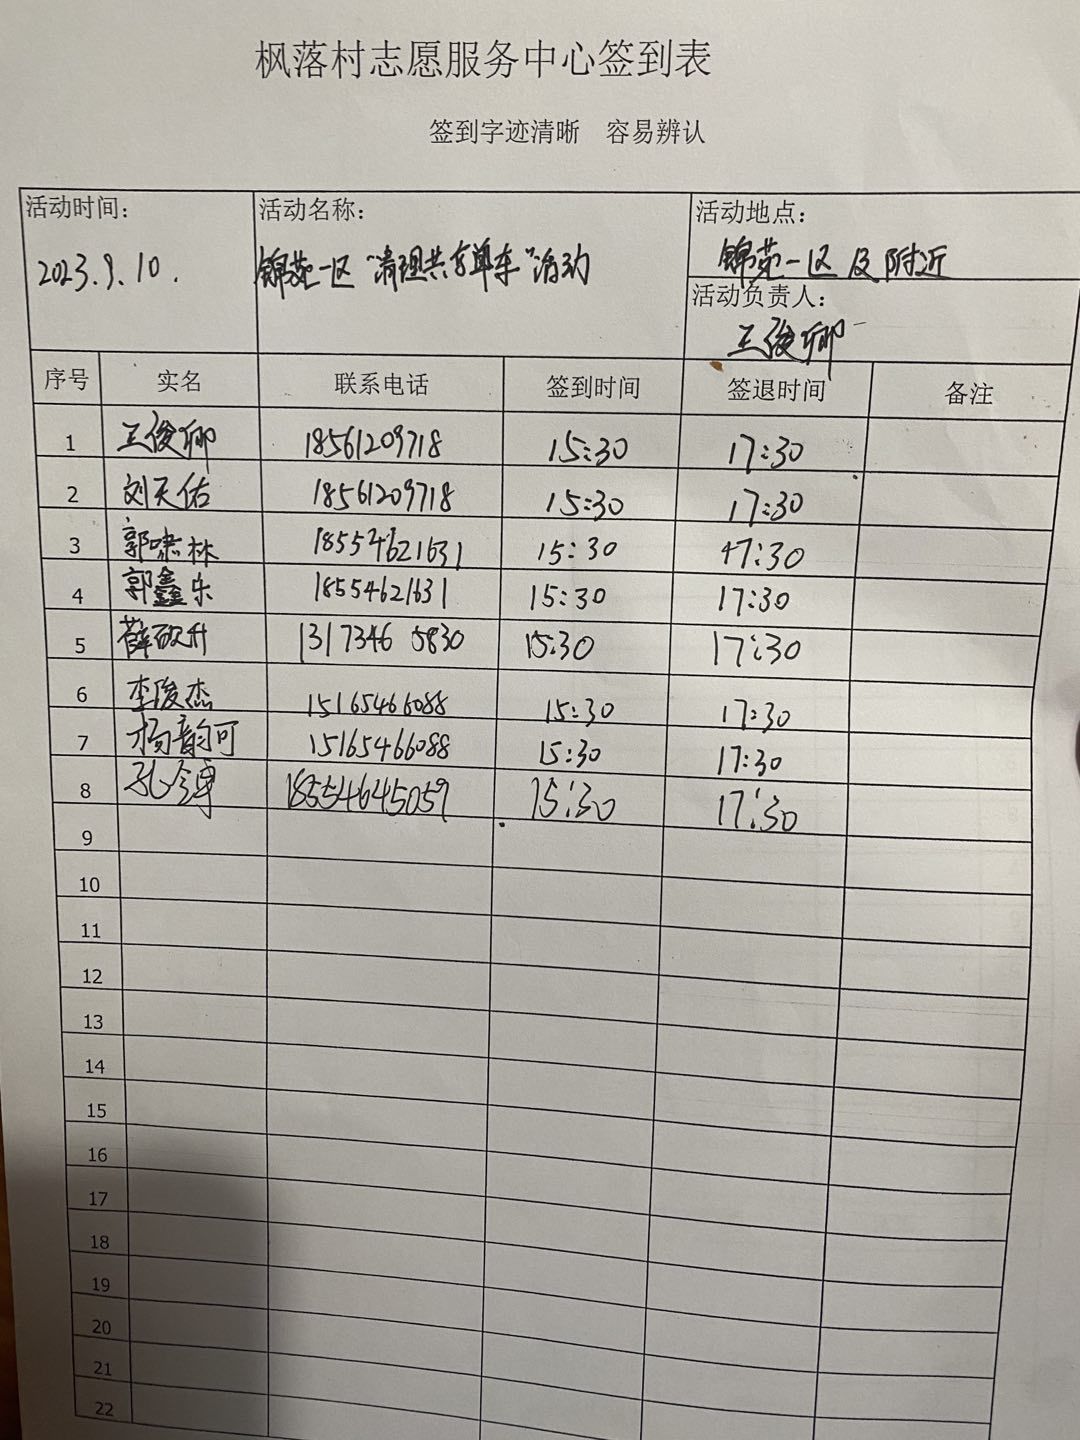 枫落村志愿服务中心签到表
签到字迹清晰 容易辨认
活动时间： 活动名称： 活动地点：
2023.9.10. 锦苑一区“清理共享单车”活动 锦苑一区及附近
活动负责人：
王俊卿
序号 实名 联系电话 签到时间 签退时间 备注
1 王俊卿 18561209718 15:30 17:30
2 刘天佑 18561209718 15:30 17:30
3 郭啸林 18554621631 15:30 17:30
4 郭鑫乐 18554621631 15:30 17:30
5 薛 升 1317346 5830 15:30 17:30
6 李俊杰 15165466088 15:30 17:30
7 杨韵可 15165466088 15:30 17:30
8 孔令 18554645059 15:30 17:30
9
10
11
12
13
14
15
16
17
18
19
20
21
22